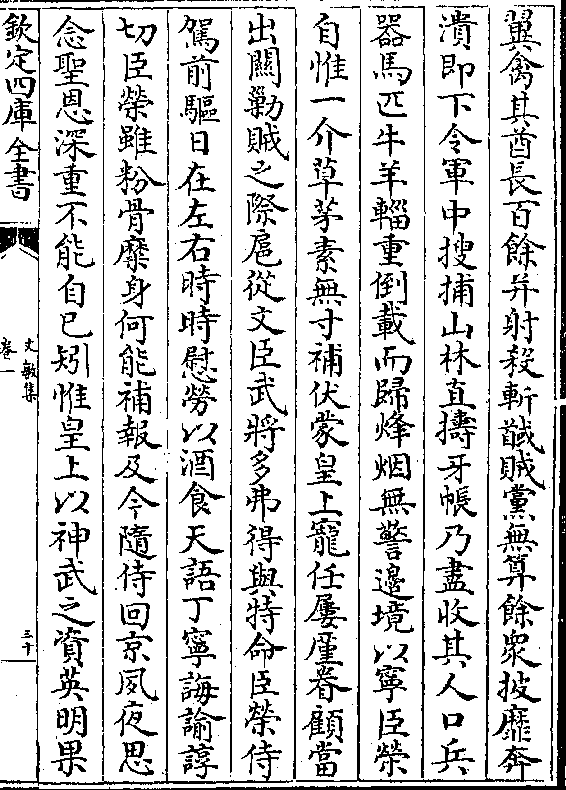 翼禽其酋長百餘并射殺斬馘賊黨無算餘衆披靡奔
潰即下令軍中搜捕山林直擣牙帳乃盡收其人口兵
器馬匹牛羊輜重倒載而歸烽烟無警邊境以寧臣榮
自惟一介草茅素無寸補伏蒙皇上寵任屢厪眷顧當
出關勦賊之際扈從文臣武將多弗得與特命臣榮侍
駕前驅日在左右時時慰勞以酒食天語丁寧誨諭諄
切臣榮雖粉骨糜身何能補報及今隨侍回京夙夜思
念聖恩深重不能自已矧惟皇上以神武之資英明果
欽定四庫全書
文敏集
卷一
三十